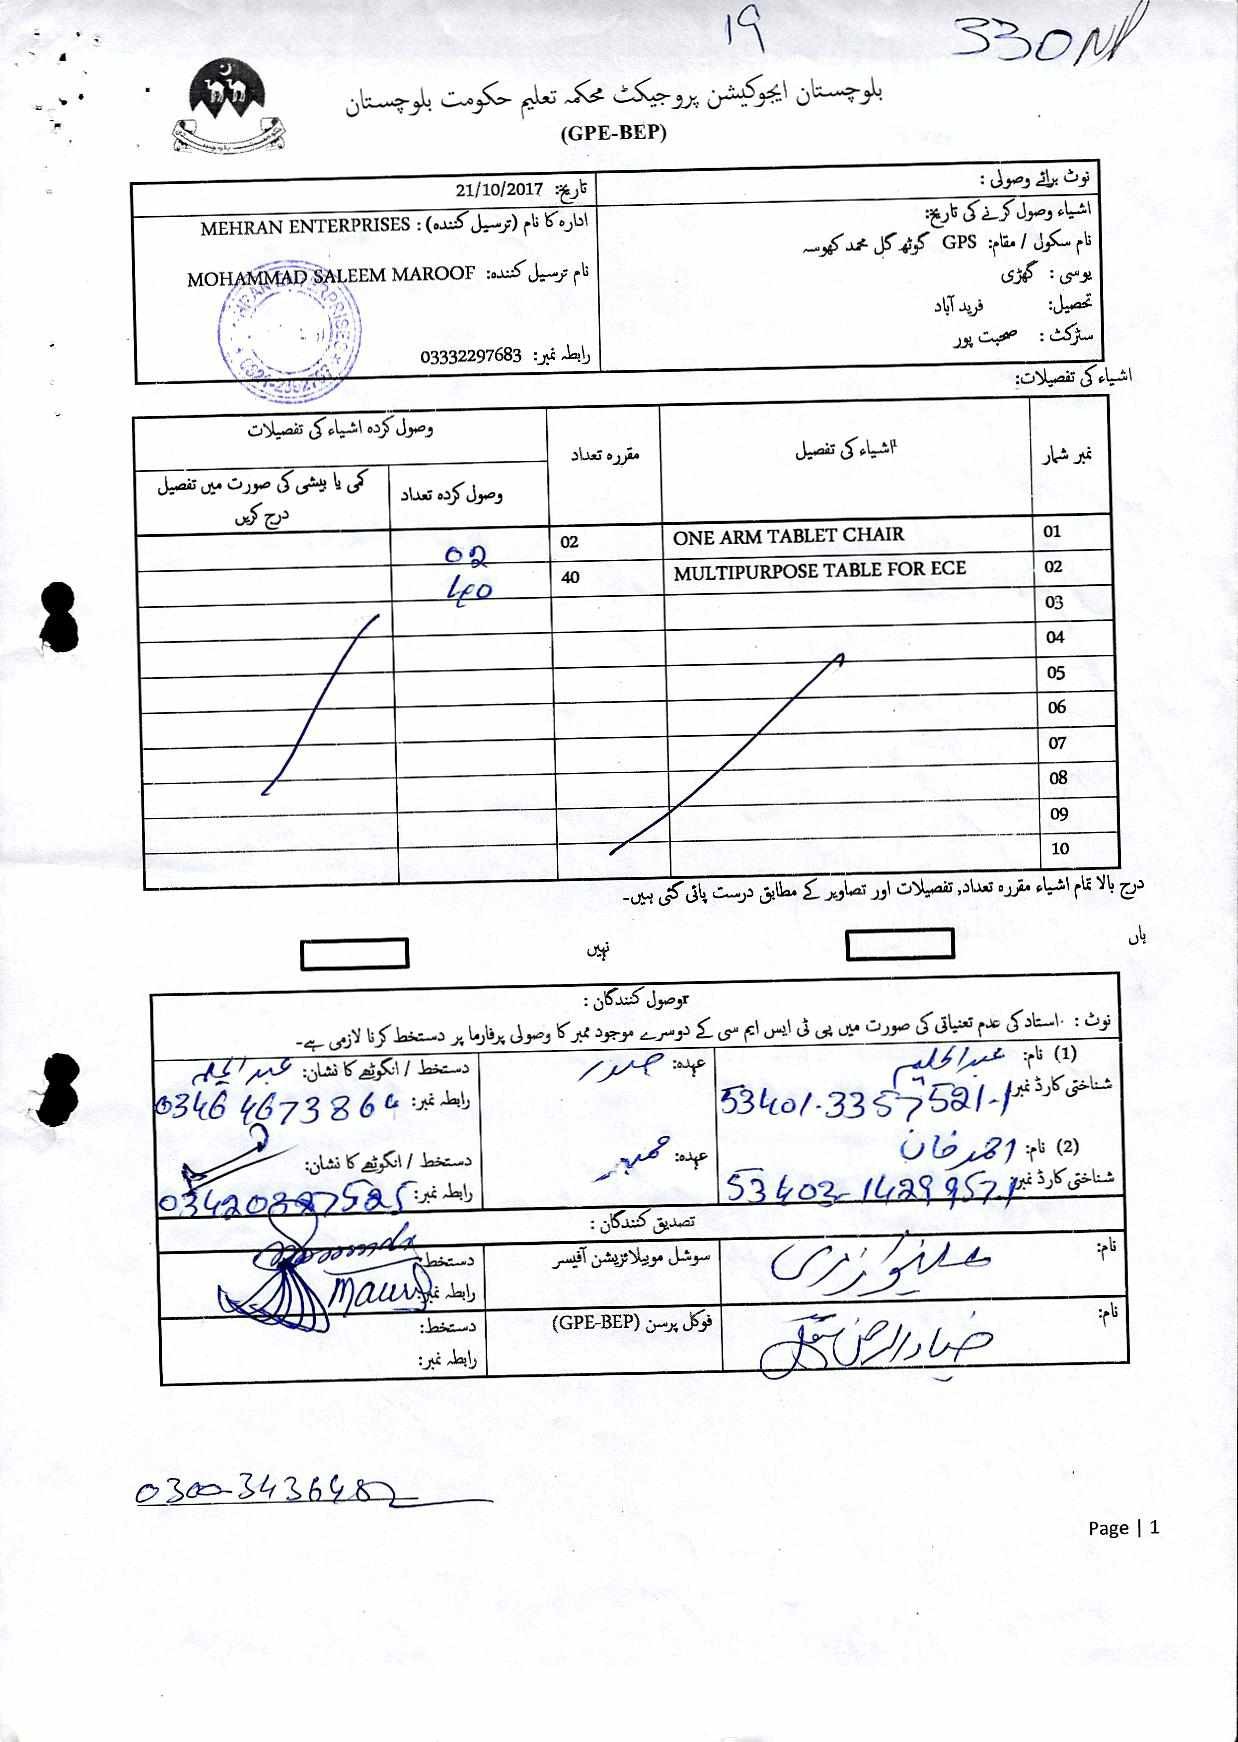 19
330 NP
بلوچستان ایجوکیشن پروجیکٹ محکمہ تعلیم حکومت بلوچستان
(GPE-BEP)
نوٹ برائے وصولی :
اشیاء وصول کرنے کی تاریخ:
نام سکول / مقام: GPS گوٹھ گل محمد کھوسہ
یوسی : گھڑی
تحصیل: فرید آباد
سٹرکٹ : صحبت پور
تاریخ: 21/10/2017
ادارہ کا نام (ترسیل کنندہ) : MEHRAN ENTERPRISES
نام ترسیل کنندہ: MOHAMMAD SALEEM MAROOF
رابطہ نمبر: 03332297683
اشیاء کی تفصیلات:
نمبر شمار اشیاء کی تفصیل مقررہ تعداد وصول کردہ اشیاء کی تفصیلات
وصول کردہ تعداد کمی یا بیشی کی صورت میں تفصیل درج کریں
01 ONE ARM TABLET CHAIR 02 02
02 MULTIPURPOSE TABLE FOR ECE 40 40
03
04
05
06
07
08
09
10
درج بالا تمام اشیاء مقررہ تعداد, تفصیلات اور تصاویر کے مطابق درست پائی گئی ہیں۔
ہاں نہیں
وصول کنندگان :
نوٹ : استاد کی عدم تعیناتی کی صورت میں پی ٹی ایس ایم سی کے دوسرے موجود ممبر کا وصولی پرفارما پر دستخط کرنا لازمی ہے۔
(1) نام: عبدالحلیم عہدہ: صدر دستخط / انگوٹھے کا نشان: عبدالحلیم
شناختی کارڈ نمبر 53401-3357521-1 رابطہ نمبر: 0346 4673864
(2) نام: احمد خان عہدہ: ممبر دستخط / انگوٹھے کا نشان:
شناختی کارڈ نمبر 53403-1429957-1 رابطہ نمبر: 03420327525
تصدیق کنندگان :
نام: سوشل موبیلائزیشن آفیسر دستخط:
رابطہ نمبر:
نام: ضیاء الرحمن فوکل پرسن (GPE-BEP) دستخط:
رابطہ نمبر:
0300-3436482
Page | 1